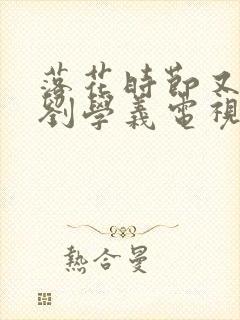 落花時節又
劉學義電視
熱合曼